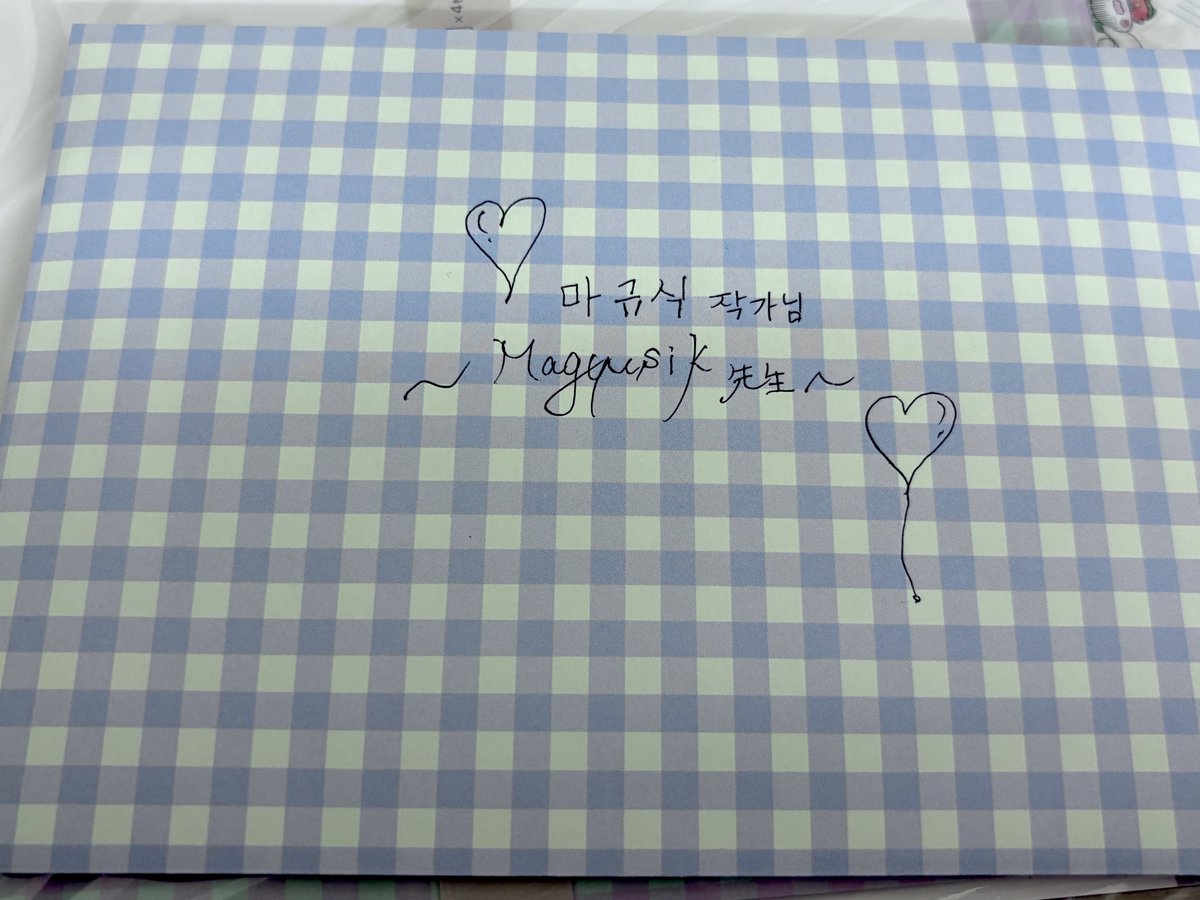 마규식 작가님
~ Magyusik 先生 ~